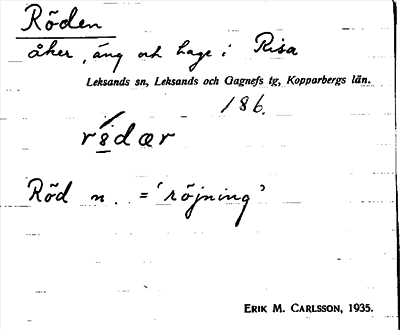 Röden
åker, äng och hage i Risa
Leksands sn, Leksands och Gagnefs tg, Kopparbergs län.
186.
Röd n. = 'röjning'
ERIK M. CARLSSON, 1935.